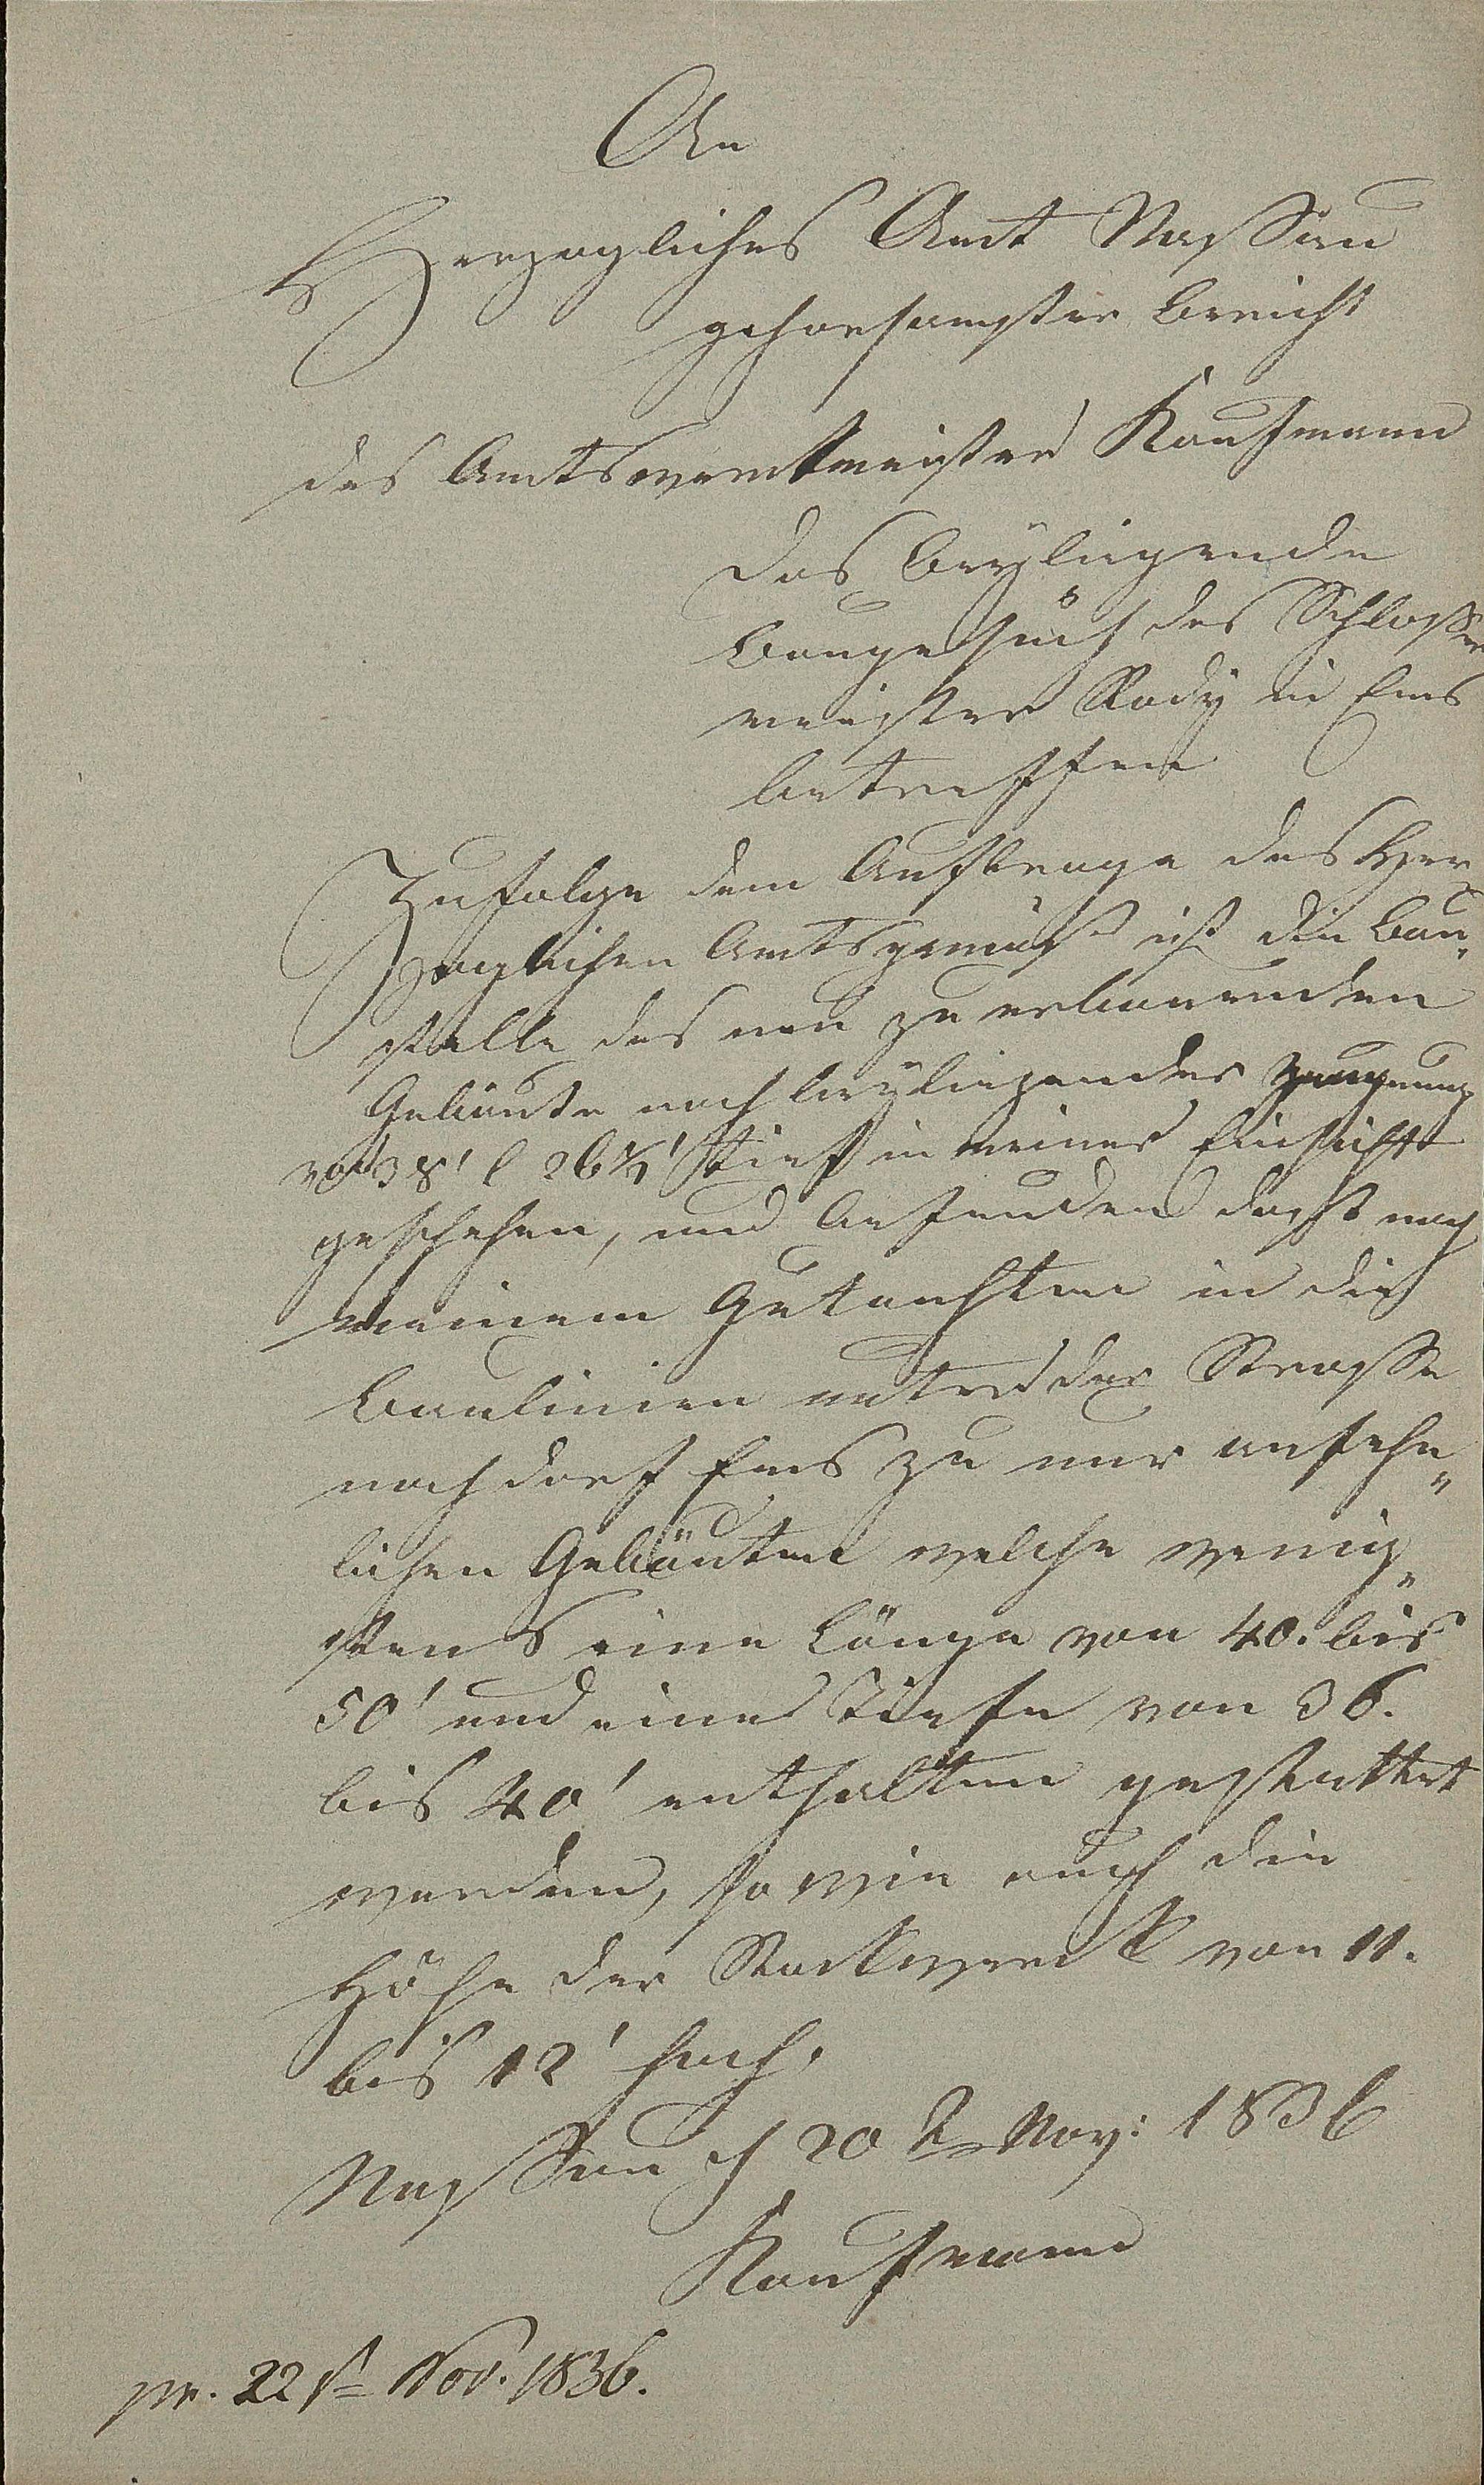 An
Herzogliches Amt Nassau
gehorsamster Bericht
des Amtswerkmeister Kaufmann
das beyliegende
Baugesuch des Schlosser
meister Rody in Ems
betreffen
Zufolge dem Auftrage des Her
zoglichen Amts gemäß ist die Bau„
stelle des neu zu erbauenden
Gebäute nach beyliegender
von 38' l 26½' tief in meiner Einsicht
geschehen, und befunden daß nach
meinem Gutachten in die
Baulinien unter der Strasse
nach dorf Ems zu nur ansehn„
lichen Gebäuten welche wenig„
stens eine Länge von 40. bis
50' und eine Tiefe von 36.
bis 40' enthalten gestattet
werden, so wie auch die
Höhe der Stockwerck von 11.
bis 12' hoch.
Nassau d 20 t Nov: 1836
Kaufmann
pr. 22 t Nov. 1836.